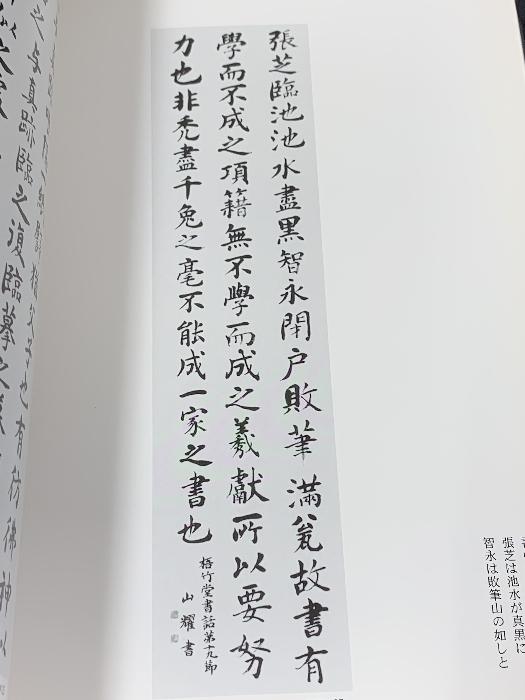 張芝臨池池水盡黒智永閉戸敗筆滿瓮故書有
學而不成之項籍無不學而成之羲獻所以要努
力也非禿盡千兔之毫不能成一家之書也
梧竹堂書話第十九節
山耀書
張芝は池水が真黒に
智永は敗筆山の如しと
之与真跡臨之復臨摹之
也有彷彿神以